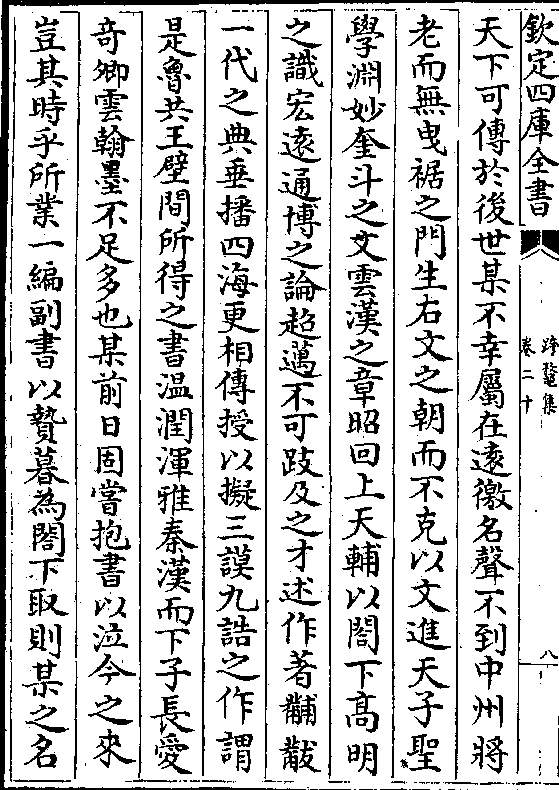 欽定四庫全書
跨鼇集
卷二十
八
天下可傳於後世某不幸屬在逺徼名聲不到中州將
老而無曳裾之門生右文之朝而不克以文進天子聖
學淵妙奎斗之文雲漢之章昭回上天輔以閤下髙明
之識宏逺通博之論超邁不可跂及之才述作著黼黻
一代之典垂播四海更相傳授以擬三謨九誥之作謂
是魯共王壁間所得之書溫潤渾雅秦漢而下子長愛
奇卿雲翰墨不足多也某前日固嘗抱書以泣今之來
豈其時乎所業一編副書以贄暮為閤下取則某之名